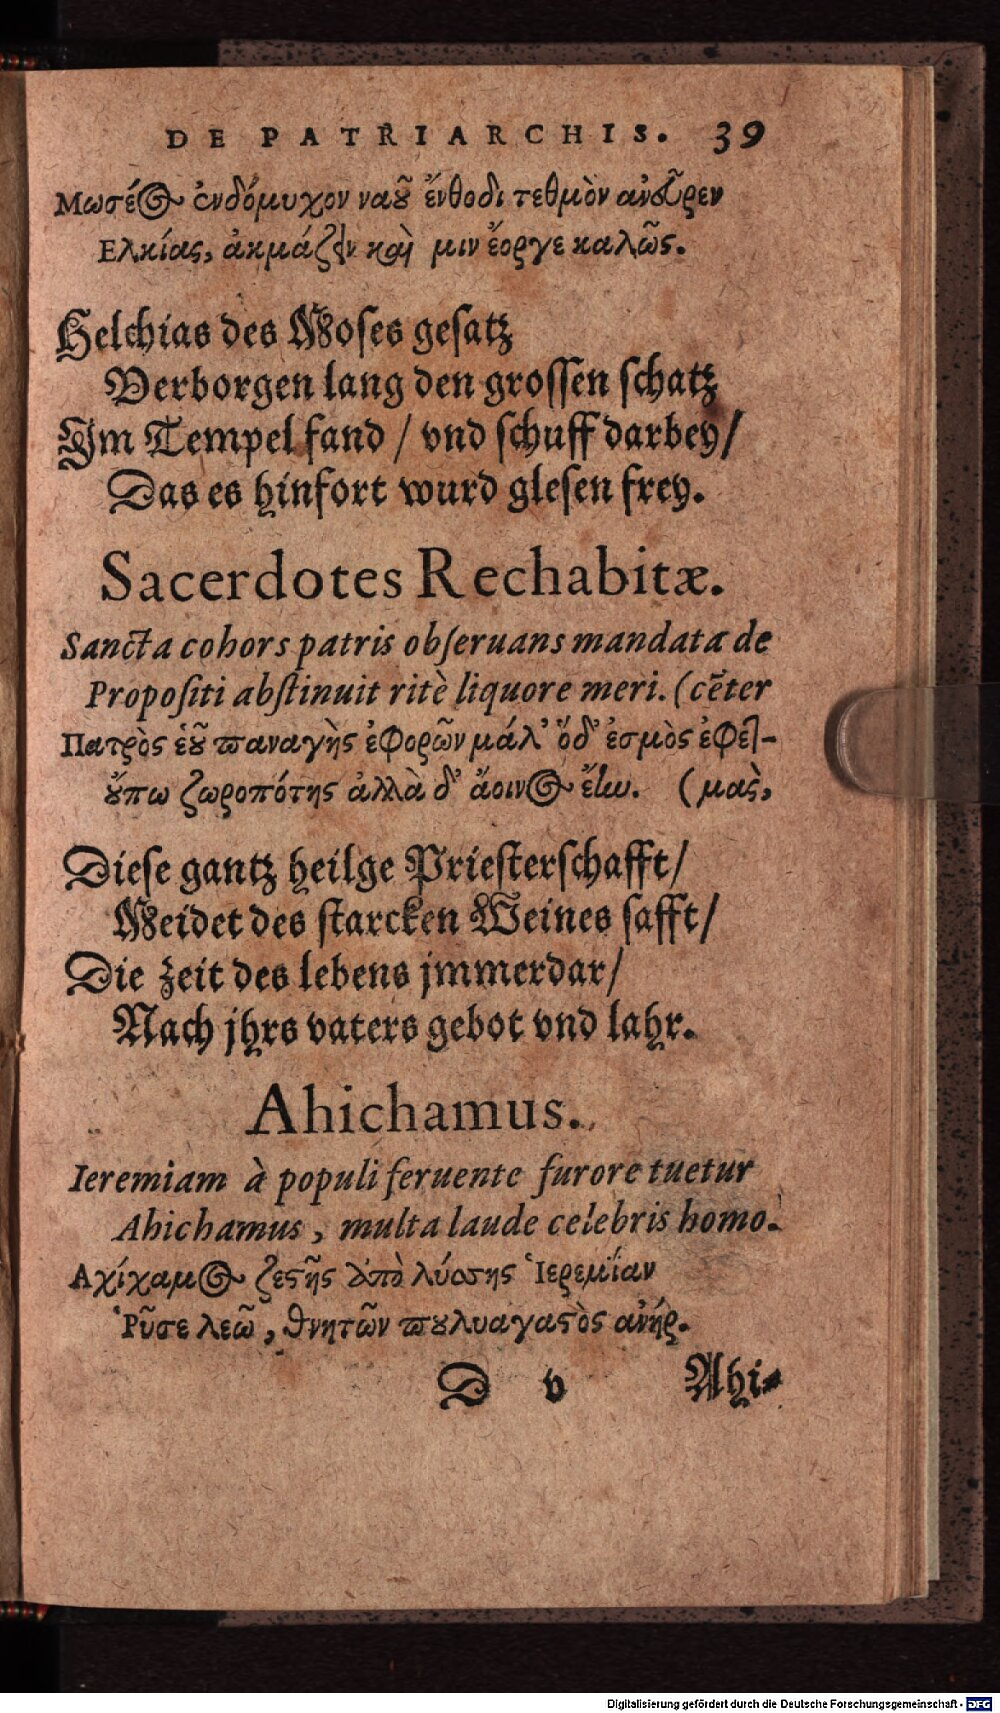 DE PATRIARCHIS. 39
Μωσέος ἐνδόμυχον ναοῦ ἔνθοδι τεθμὸν ἀνεῦρεν
Ελκίας, ἀκμάζειν καὶ μιν ἔοργε καλῶς.
Helchias des Moses gesatz
Verborgen lang den grossen schatz
Im Tempel fand / vnd schuff darbey/
Das es hinfort wurd glesen frey.
Sacerdotes Rechabitæ.
Sancta cohors patris obseruans mandata de
Propositi abstinuit ritè liquore meri. (cẽter
Πατρὸς ἑοῦ παναγὴς ἐφορῶν μάλ' ὅδ' ἐσμὸς ἐφετ-
οὔπω ζωροπότης ἀλλὰ δ' ἄοινος ἔην. (μὰς,
Diese gantz heilge Priesterschafft/
Meidet des starcken Weines safft/
Die zeit des lebens jmmerdar/
Nach jhrs vaters gebot vnd lahr.
Ahichamus.
Ieremiam à populi feruente furore tuetur
Ahichamus, multa laude celebris homo.
Αχίχαμος ζεστῆς ὑπὸ λύσσης Ἱερεμΐαν
Ῥῦσε λεῶ, θνητῶν πουλυαγαστὸς ἀνήρ.
D v Ahi-
Digitalisierung gefördert durch die Deutsche Forschungsgemeinschaft - DFG